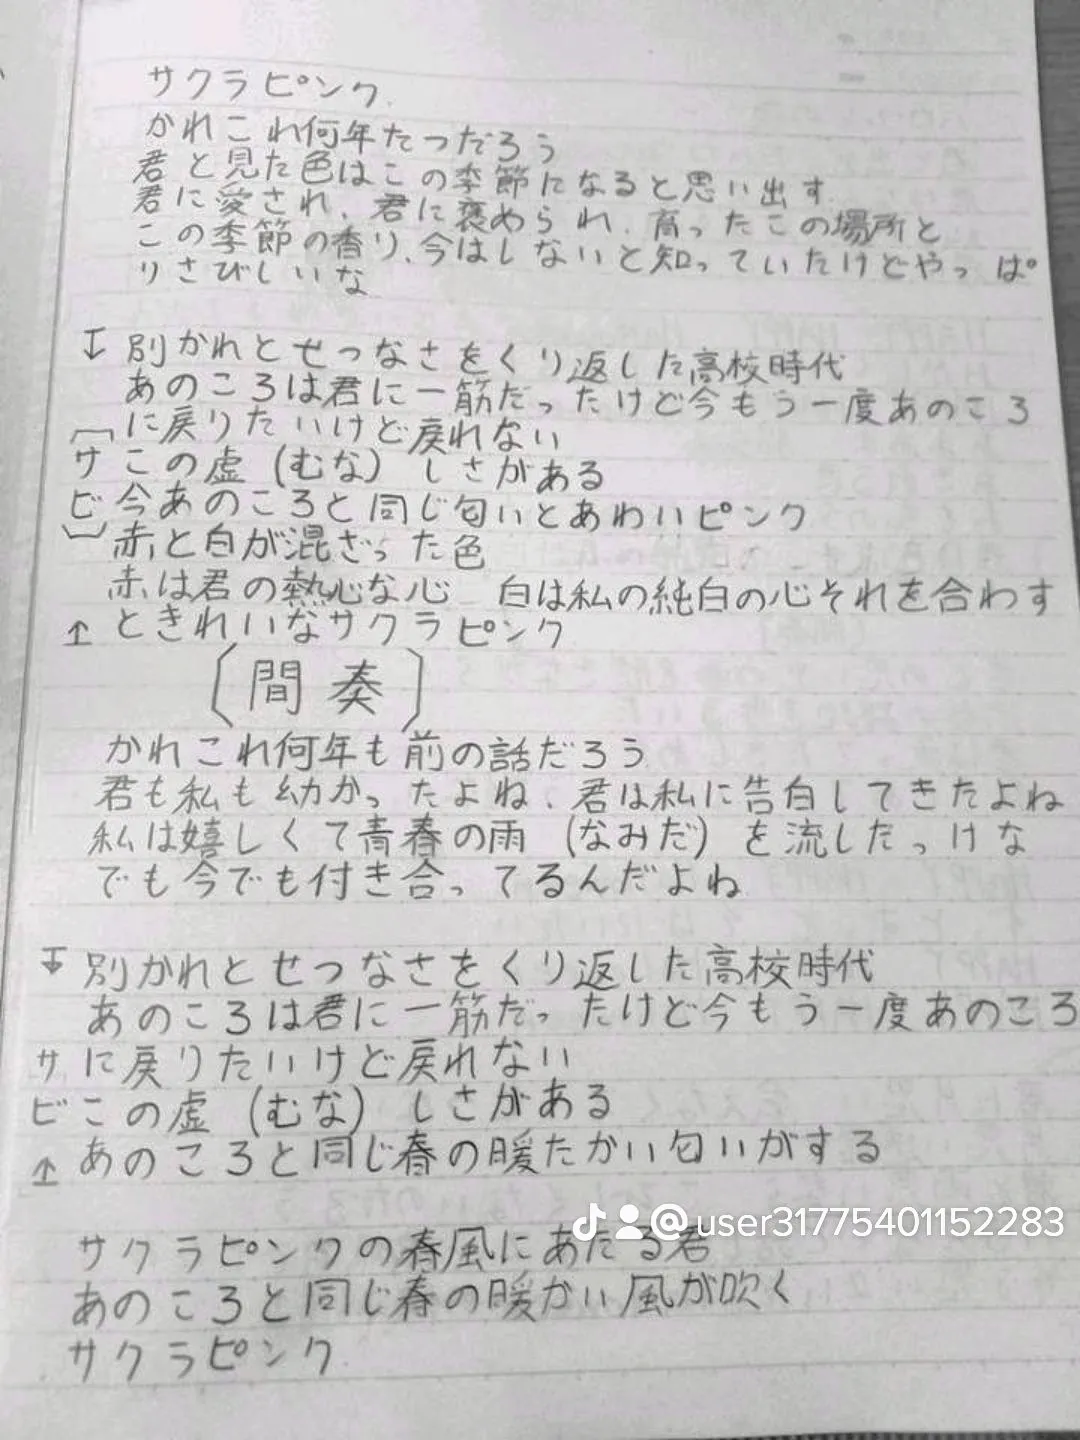 サクラピンク
かれこれ何年たつだろう
君と見た色はこの季節になると思い出す
君に愛され、君に褒められ、育ったこの場所と
この季節の香り、今はしないと知っていたけどやっぱ
りさびしいな
↓ 別かれとせつなさをくり返した高校時代
あのころは君に一筋だったけど今もう一度あのころ
に戻りたいけど戻れない
サ この虚(むな)しさがある
ビ 今あのころと同じ匂いとあわいピンク
赤と白が混ざった色
赤は君の熱心な心 白は私の純白の心それを合わす
↑ ときれいなサクラピンク
〔間奏〕
かれこれ何年も前の話だろう
君も私も幼かったよね、君は私に告白してきたよね
私は嬉しくて青春の雨(なみだ)を流したっけな
でも今でも付き合ってるんだよね
↓ 別かれとせつなさをくり返した高校時代
あのころは君に一筋だったけど今もう一度あのころ
サ に戻りたいけど戻れない
ビ この虚(むな)しさがある
↑ あのころと同じ春の暖たかい匂いがする
@user31775401152283
サクラピンクの春風にあたる君
あのころと同じ春の暖かい風が吹く
サクラピンク